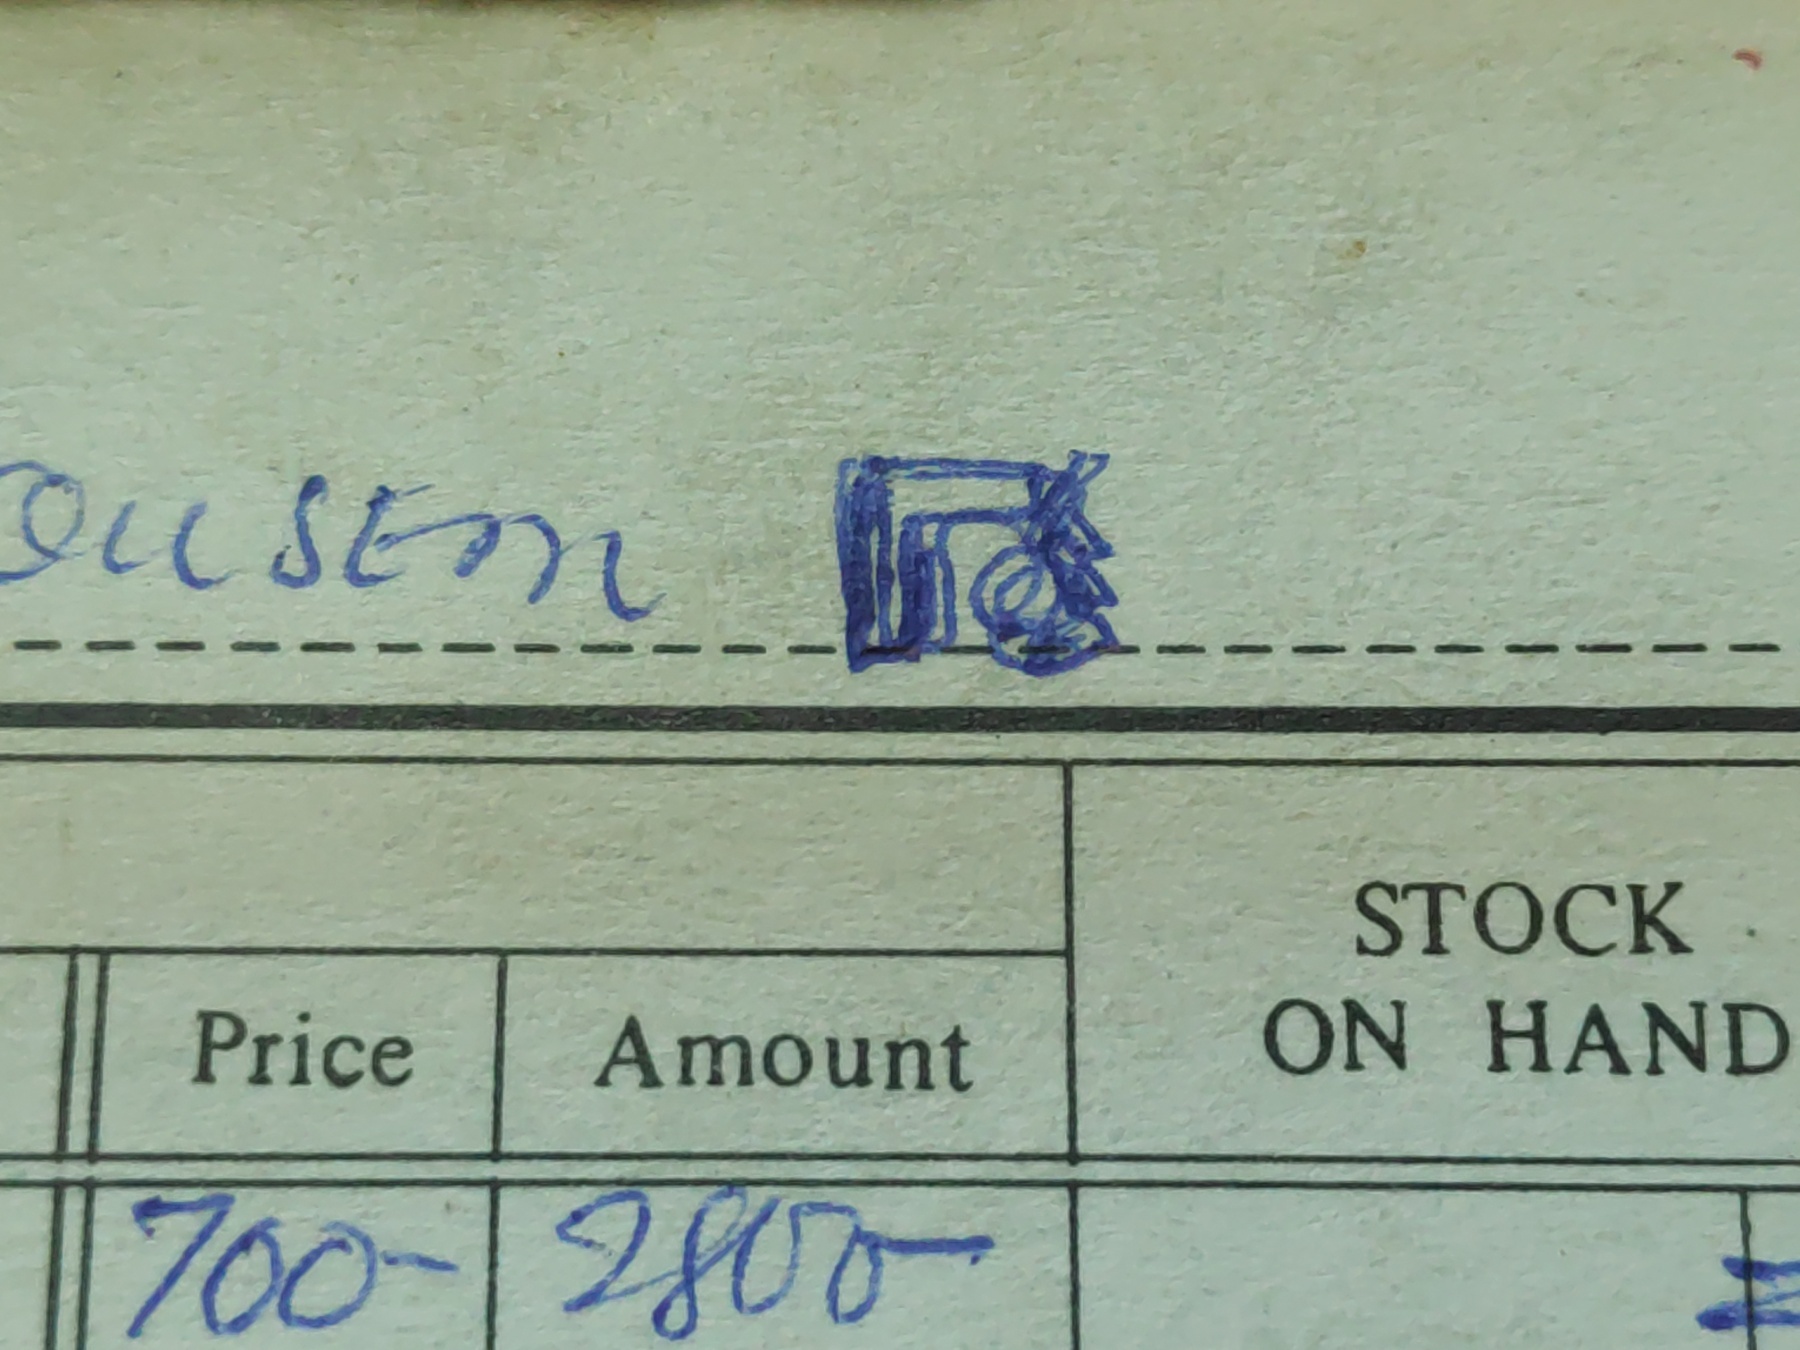 Price Amount STOCK
ON HAND
700- 2800-